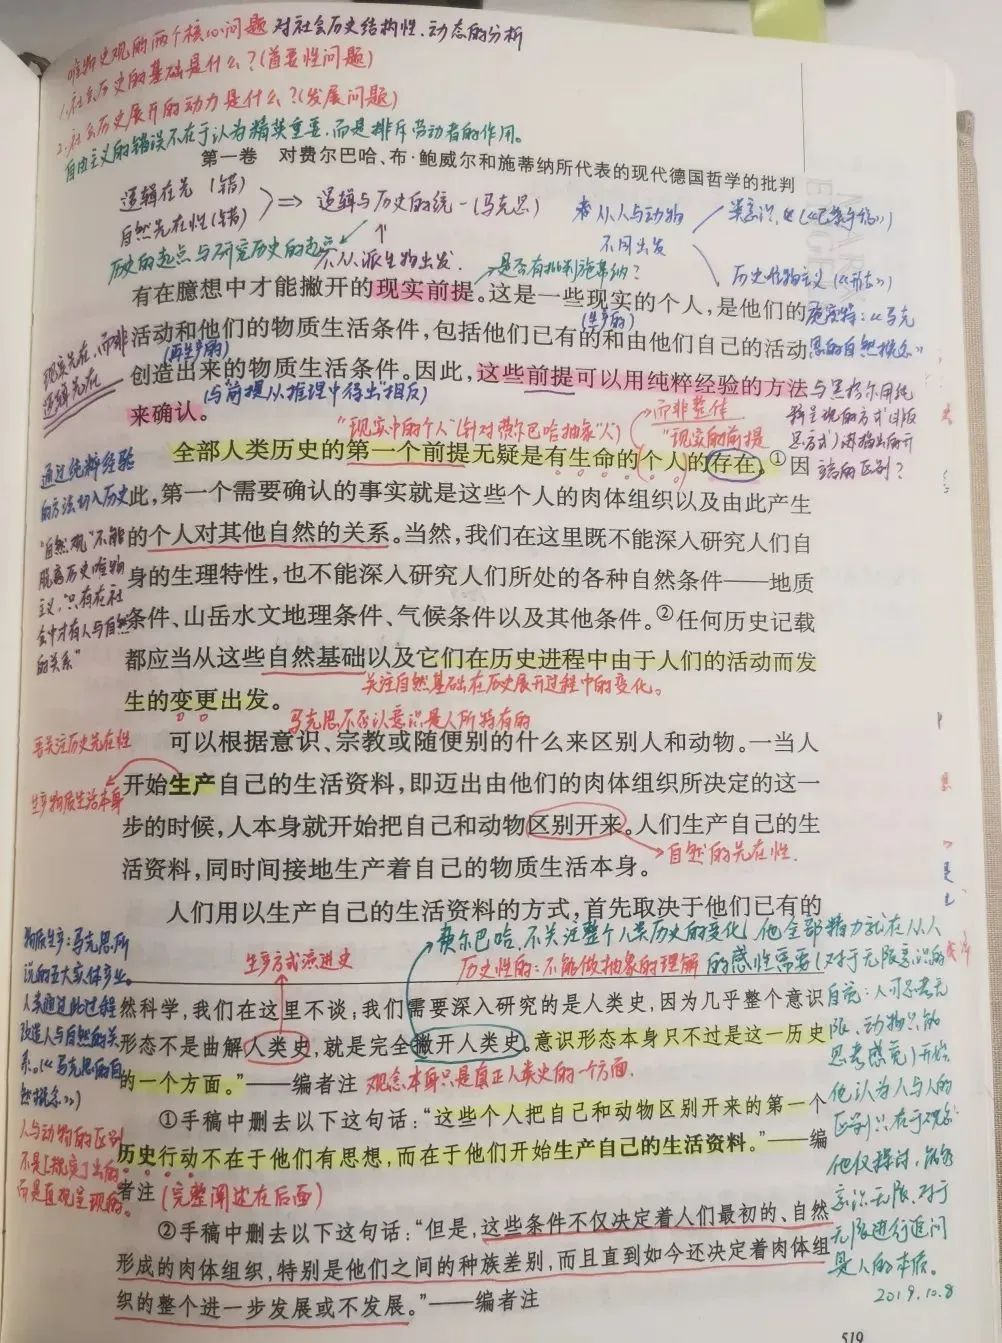 唯物史观的两个核心问题 对社会历史结构性、动态的分析
1.社会历史的基础是什么？(首要性问题)
2.社会历史展开的动力是什么？(发展问题)
自由主义的错误不在于认为精英重要，而是排斥劳动者的作用。
第一卷 对费尔巴哈、布·鲍威尔和施蒂纳所代表的现代德国哲学的批判
逻辑在先（错）
自然先在性（错）
⇒ 逻辑与历史的统一（马克思）
历史的起点与研究历史的起点
↑
不从派生物出发.
从人与动物
不同出发
是否有批判施蒂纳？
历史唯物主义（《形态》）
有在臆想中才能撇开的现实前提。这是一些现实的个人，是他们的
(生产的)
施密特：《马克
活动和他们的物质生活条件，包括他们已有的和由他们自己的活动
思的自然概念》
(再生产的)
现实先在，而非
逻辑先在
创造出来的物质生活条件。因此，这些前提可以用纯粹经验的方法
与黑格尔用纯
来确认。
(与"前提从推理中得出"相反)
"现实中的个人"(针对费尔巴哈抽象"人")
而非整体
"现实的前提
全部人类历史的第一个前提无疑是有生命的个人的存在。①因
结的区别？
通过纯粹经验
的方法切入历史
此，第一个需要确认的事实就是这些个人的肉体组织以及由此产生
的个人对其他自然的关系。当然，我们在这里既不能深入研究人们自
"自然观"不能
脱离历史唯物
主义，"只有在社
会中才有人与自然
的关系"
身的生理特性，也不能深入研究人们所处的各种自然条件——地质
条件、山岳水文地理条件、气候条件以及其他条件。②任何历史记载
都应当从这些自然基础以及它们在历史进程中由于人们的活动而发
关注自然基础在历史展开过程中的变化。
生的变更出发。
马克思不否认意识是人所特有的
可以根据意识、宗教或随便别的什么来区别人和动物。一当人
要关注历史先在性
开始生产自己的生活资料，即迈出由他们的肉体组织所决定的这一
生产物质生活本身
步的时候，人本身就开始把自己和动物区别开来。人们生产自己的生
自然的先在性.
活资料，同时间接地生产着自己的物质生活本身。
人们用以生产自己的生活资料的方式，首先取决于他们已有的
费尔巴哈，不关注整个人类历史的变化，他全部精力就在从人
生产方式演进史
历史性的：不能做抽象的理解
的感性需要(对于无限意识的
物质生产：马克思所
说的五大实体产业。
人类通过此过程
改造人与自然的关
系。(《马克思的自
然概念》)
然科学，我们在这里不谈；我们需要深入研究的是人类史，因为几乎整个意识
形态不是曲解人类史，就是完全撇开人类史。意识形态本身只不过是这一历史
的一个方面。"——编者注
观念本身只是真正人类史的一个方面.
自觉：人可思考无
限，动物只能
思考感觉)开始.
他认为人与人的
区别只在于观念
①手稿中删去以下这句话："这些个人把自己和动物区别开来的第一个
人与动物的区别
不是[规定]出的
而是直观呈现的。
历史行动不在于他们有思想，而在于他们开始生产自己的生活资料。"——编
者注
(完整阐述在后面)
他仅探讨，
意识无限，对于
无限进行追问
是人的本质。
2019.10.8
②手稿中删去以下这句话："但是，这些条件不仅决定着人们最初的、自然
形成的肉体组织，特别是他们之间的种族差别，而且直到如今还决定着肉体组
织的整个进一步发展或不发展。"——编者注
519